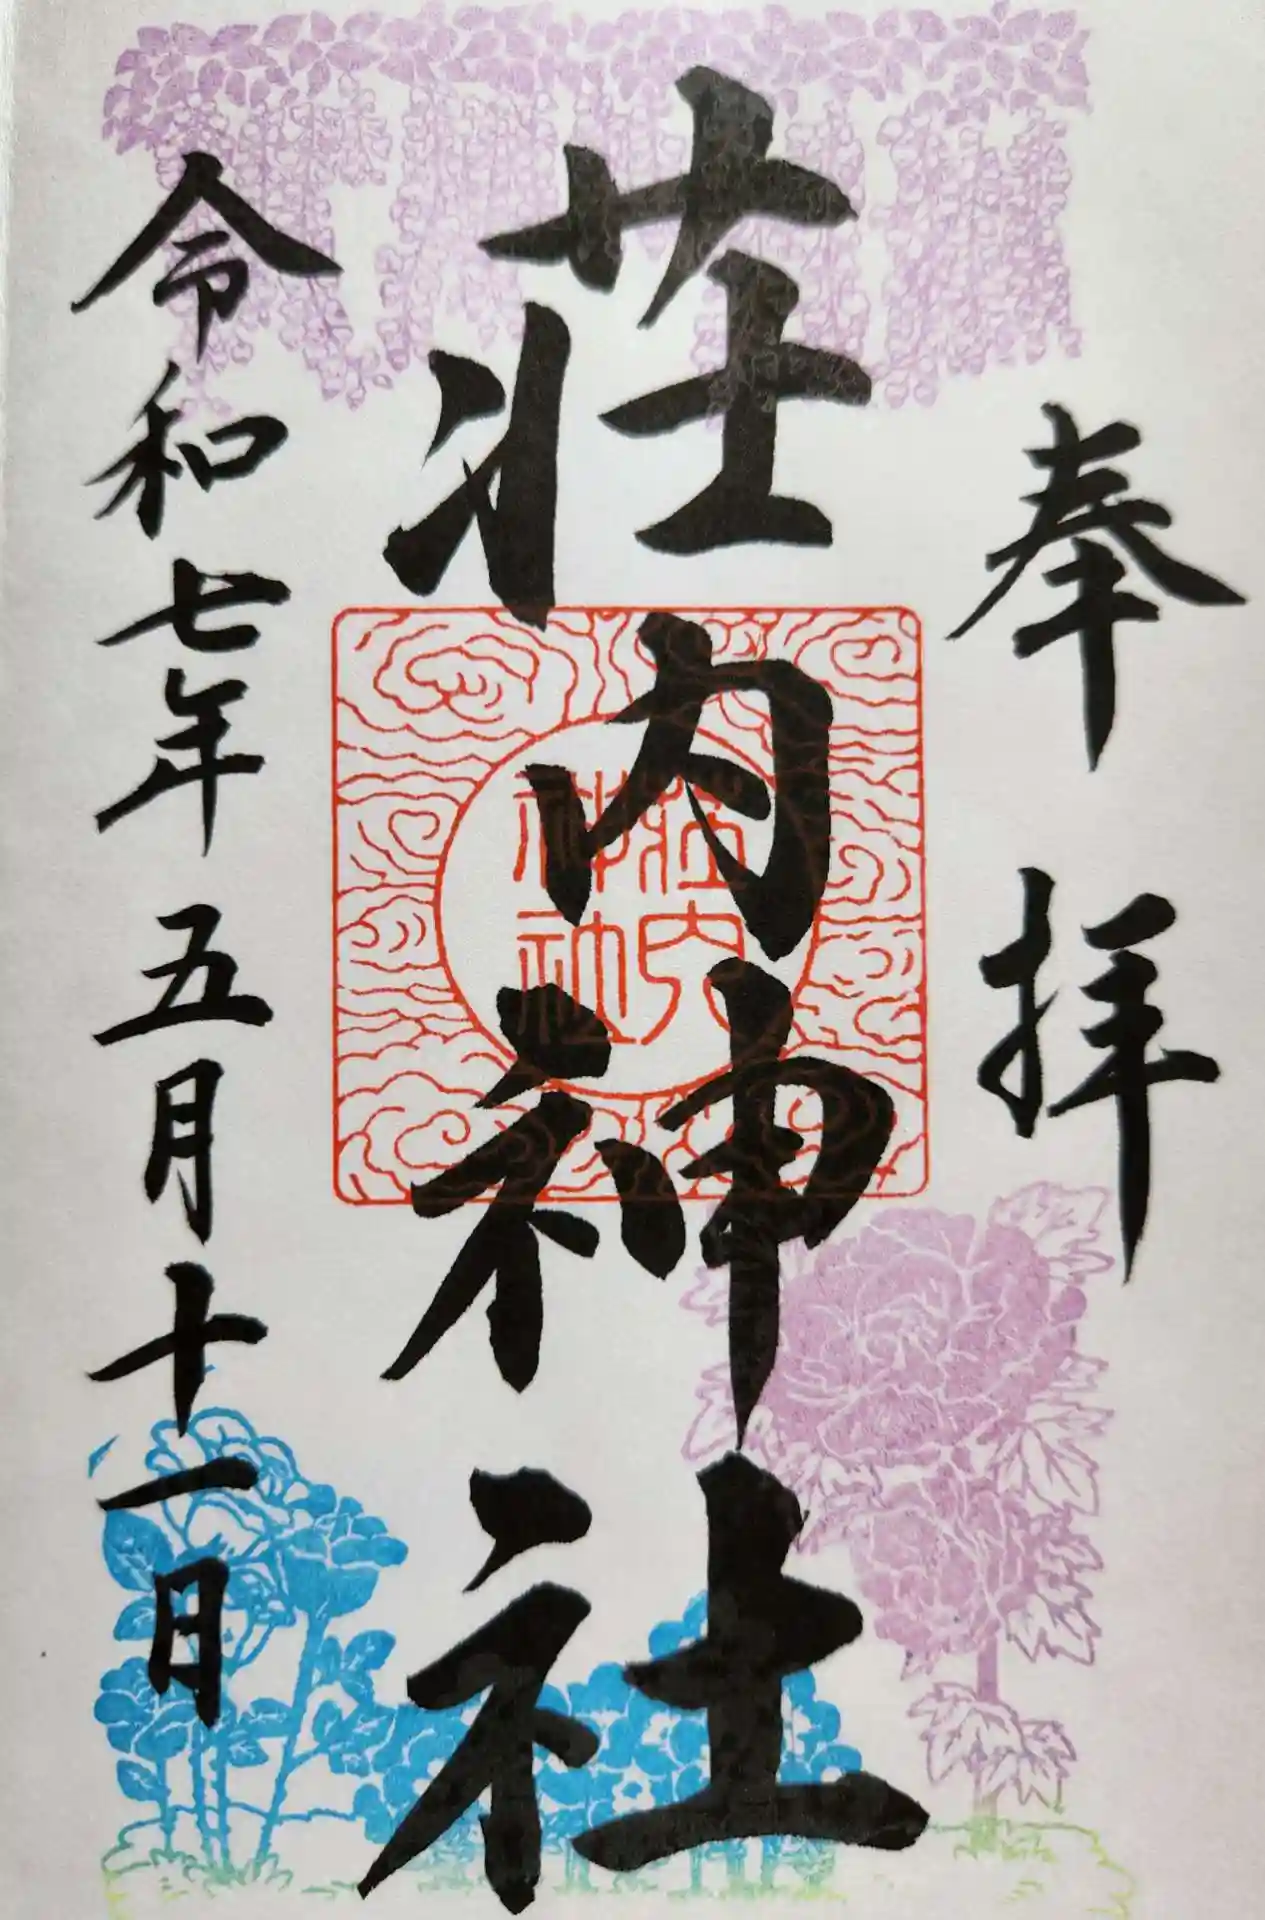 奉拝
荘内神社
荘内
神社
令和七年五月十一日